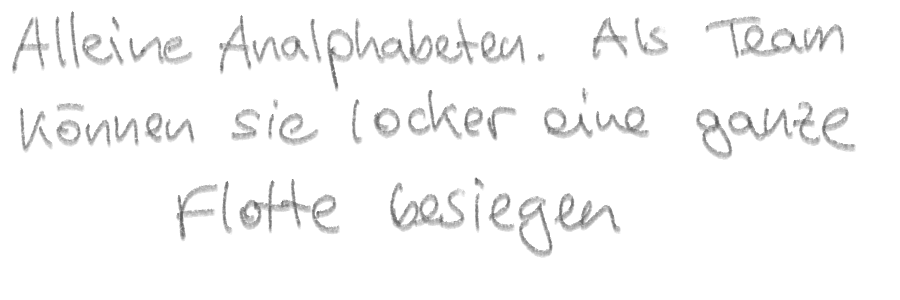 Alleine Analphabeten. Als Team
können sie locker eine ganze
Flotte besiegen